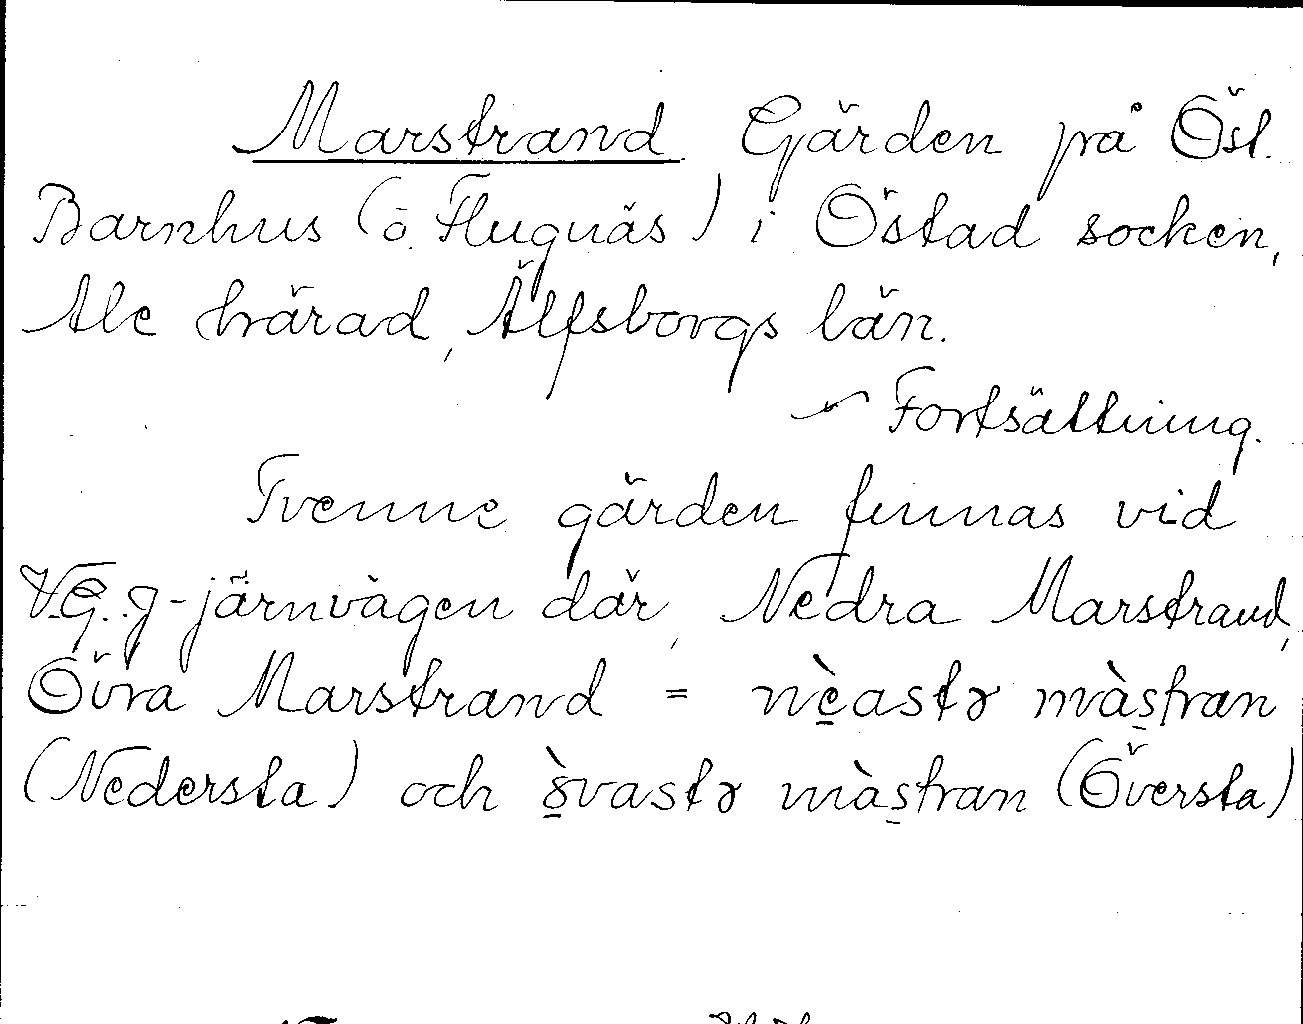 Marstrand Gården på Öst.
Barnhus (ö. Flugnäs) i Östad socken,
Ale härad, Älfsborgs län.
Fortsättning.
Tvenne gården finnas vid
V.G.g-järnvägen där, Nedra Marstrand,
Övra Marstrand = nèastɘ màstran
(Nedersta) och òvastɘ màstran (Översta)